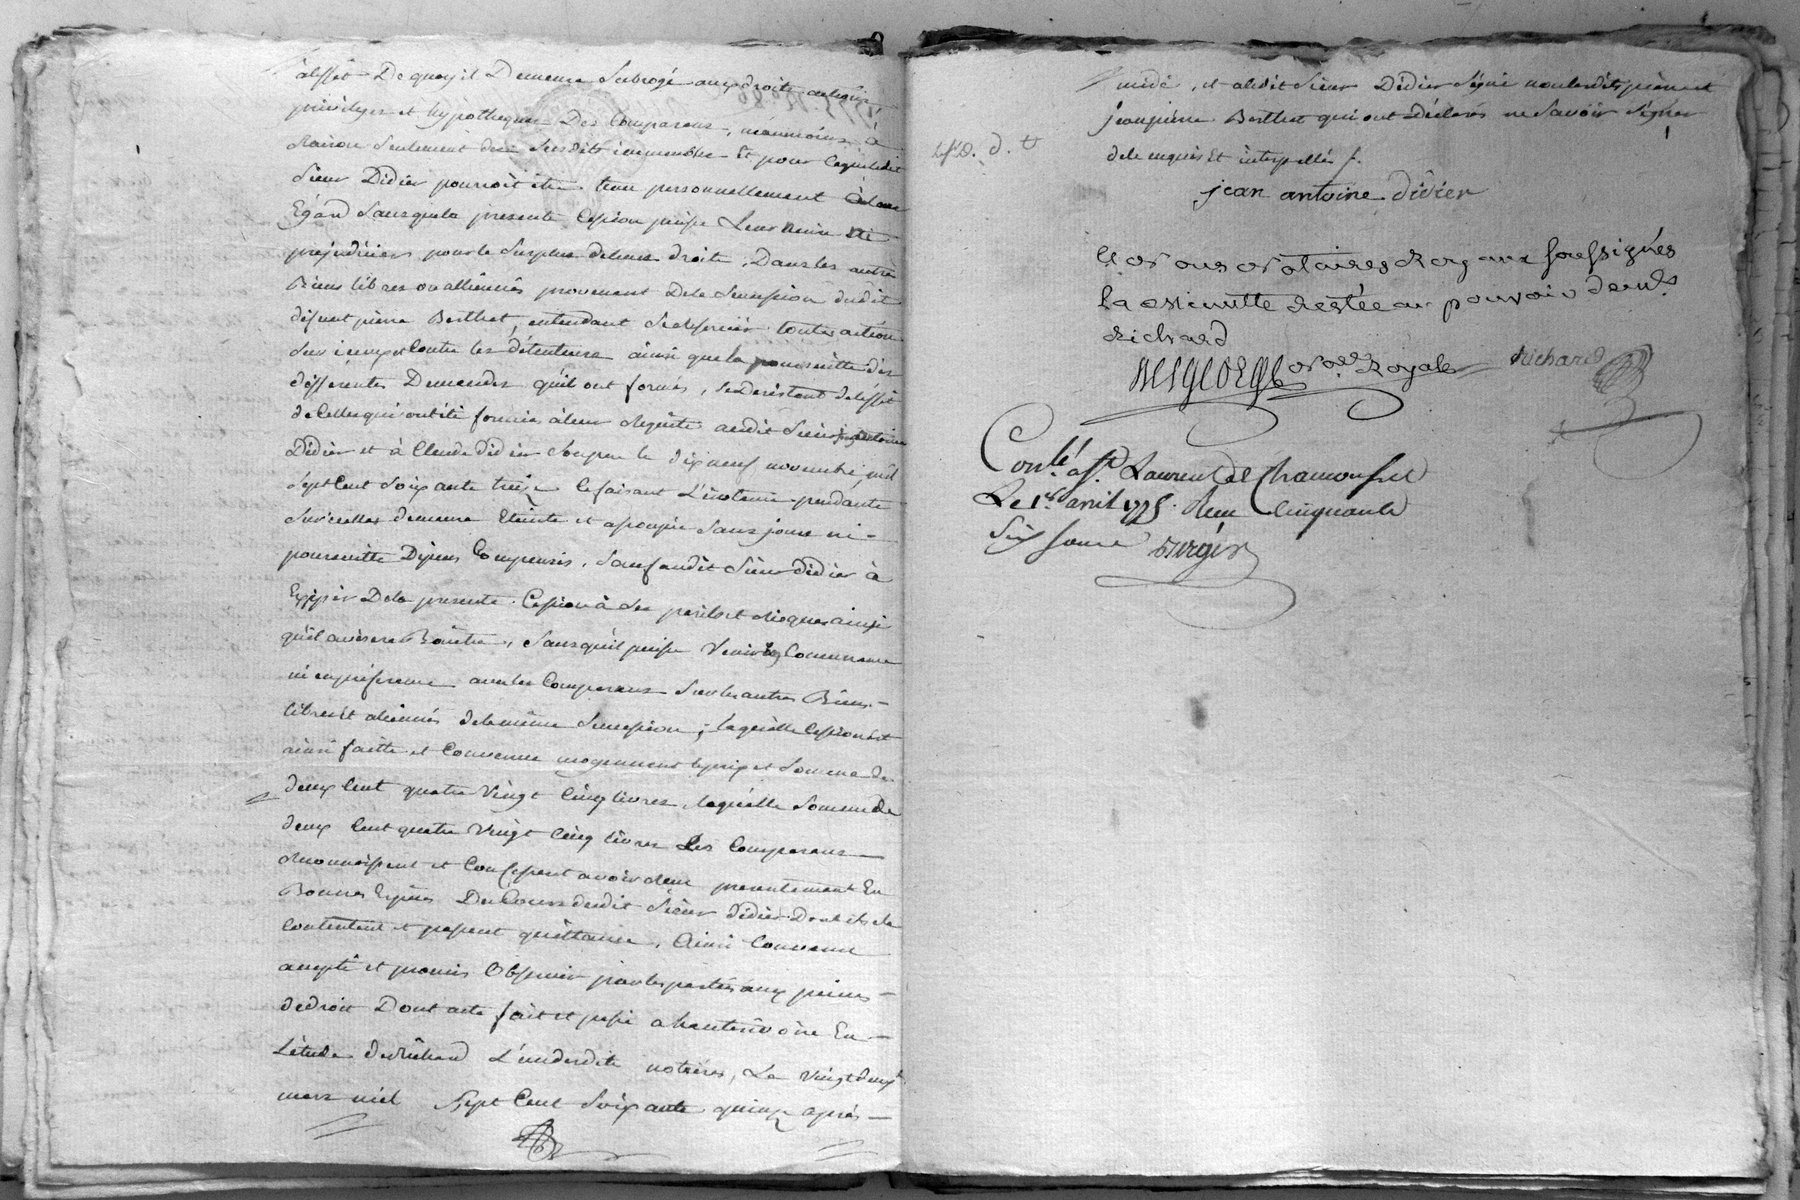 à l'effet De quoy il Demeure Subrogé aux droits
privileges et hypotheques Des Comparans, néanmoins à
Raison Seulement desd. Susdits immeubles Et pour lequel ledit
Sieur Didier pourroit être tenu personnellement à leur
Egard Sans que la presente Cession puisse Leur Nuire ni
prejudicier pour le Surplus de leurs droits, Dans les autres
Biens libres ou alliénés provenant De la Succession dudit
defunt pierre Berthet, entendant Se reserver toutes actions
Sur iceux et Contre les détenteurs ainsi que la poursuitte des
differentes Demandes qu'ils ont formés, Se desistant de l'effet
de Celles qui ont été formées à leur Requête audit Sieur jean antoine
Didier et à Claude Didier Son pere le dix neuf novembre mil
Sept Cent Soixante treize Ce faisant L'instance pendante
Sur icelles demeure Eteinte et assoupie Sans jours ni
poursuitte Dépens Compensés, Sauf audit Sieur Didier à
User De la presente Cession à Ses perils et risques ainsi
qu'il avisera Bon être, Sans qu'il puisse Venir En Concurrence
ni en préference avec les Comparans Sur les autres Biens
libres et aliennés de la même Succession; laquelle Cession est
ainsi faitte et Convenue moyennant le prix et Somme de
deux Cent quatre Vingt Cinq livres, laquelle Somme de
deux Cent quatre Vingt Cinq livres Les Comparans
Reconnoissent et Confessent avoir Reçu presentement En
Bonnes Espèces De Cours dudit Sieur Didier Dont ils se
Contentent et passent quittance, Ainsi Convenu
accepté et promis Observer par les parties aux peines
de droit Dont acte fait et passé à hauterivoire En
L'étude de Richard L'un desdits notaires, Le Vingt deux
mars mil Sept Cent Soixante quinze après
midi, et a ledit Sieur Didier Signé non lesdits pierre et
jean pierre Berthet qui ont Déclarés ne Savoir Signer
de ce enquis Et interpellés
jean antoine didier
Et Nous Notaires Royaux soussignés
La Minutte Restée au pouvoir dud.
Richard
DESGEORGE Nore Royale Richard
Conlé à St Laurent de Chamousset
Le 1er avril 1775. Reçu Cinquante
Six sous